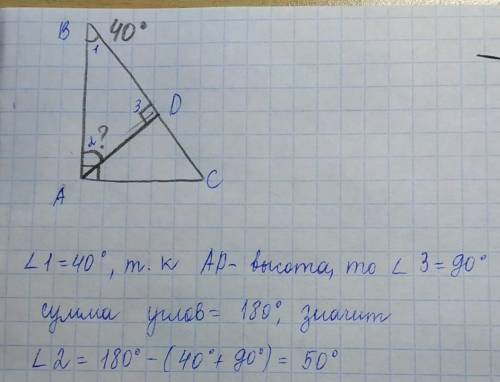 B 40°
1
3 D
2 ?
A C
∠1=40°, т.к AD- высота, то ∠3=90°
сумма углов= 180°, значит
∠2 = 180°-(40°+90°)= 50°